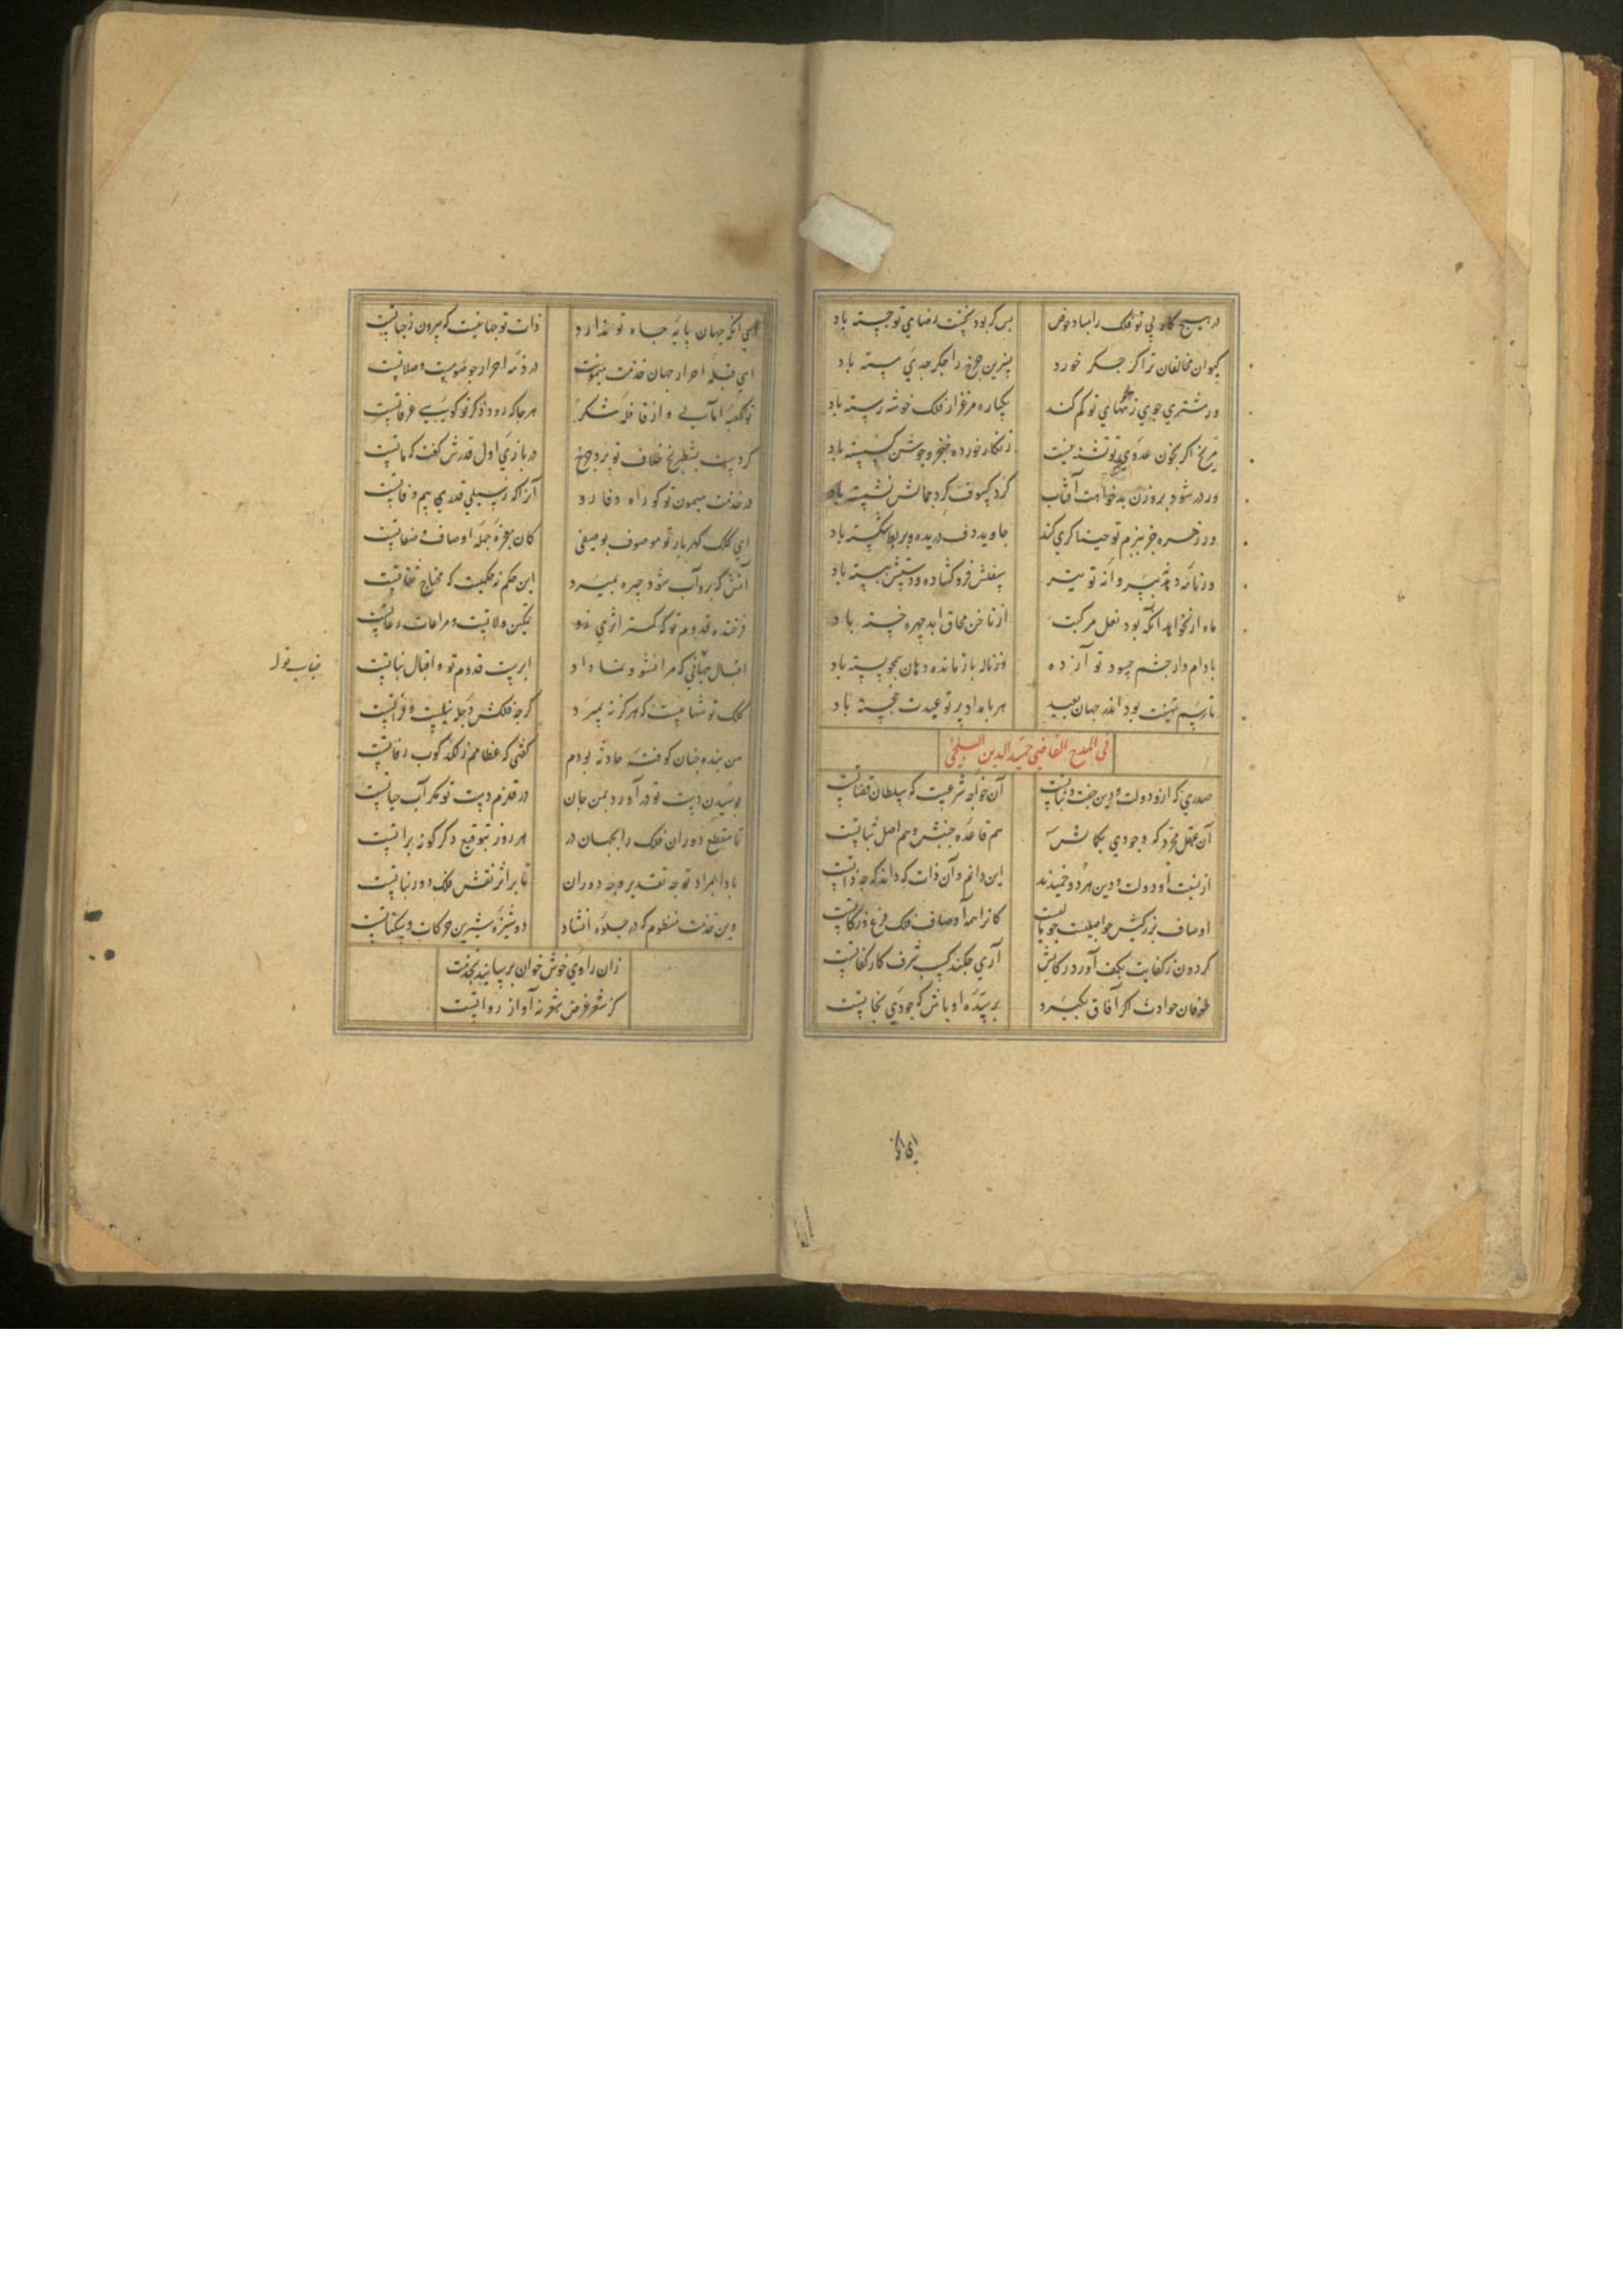 در هیچ کار بی تو فلک را مباد خوض
بس کر بود نخست رضای تو جسته باد
کیوان مخالفان ترا کر جکر خورد
نسرین جرخ را جکر جدی مسته باد
ور مشتری جوی ز هوای تو کم کند
یکباره مرغزار فلک خوشه رسته باد
مریخ اکر بخون عدوی تو تشنه نیست
زنکار خورده خنجر و جوشن کسسته باد
ور در شود بروزن بدخواهت آفتاب
کرد کسوف کرد جمالش نشسته باد
ور زهره جز ببزم تو خنیاکری کند
جاوید دف دریده و بربط شکسته باد
ور نامه دبیر نه تو تیر
سفلش فرو کشاده و دستش ببسته باد
ماه ار نخواهد آنکه بود نعل مرکبت
از ناخن محاق ابد جهره خسته باد
بادام وار جشم حسود تو آزده
وز ناله باز مانده دهان همجو پسته باد
تا رسم تهنیت بود اندر جهان بعید
هر بامداد بر تو عیدت خجسته باد
فی المدح القاضی حمید الدین البلخی
صدری که ازو دولت و دین جفت ثباتست
آن خواجه شرعیست که سلطان قضاتست
آن عقل مجرد که وجودی بکمالش
هم قاعده جنبش و هم اصل ثباتست
از نسبت او دولت و دین هر دو حمیدند
این دانم و آن ذات که داند که جه ذاتست
اوصاف بزرکیش جو اصلیست جو مالیست
کانرا همه اوصاف فلک فرع و زکاتست
کردون ز کفایت بکف آورد رکابش
آری جکند کسب شرف کار کفاتست
طوفان حوادث اکر آفاق بکیرد
بر سده او باش که جودی نجاتست
ای انکه
ای انکه جهان پایه جاه تو ندارد
ذات تو جهانیست که بیرون ز جهاتست
ای قبله احرار جهان خدمت میمونت
در ذمه احرار جو صومست و صلاتست
تو کعبه امالی و از قافله شکر
هر جا که رود ذکر تو کویی عرفاتست
کردست بشطرنج خلاف تو برد جرخ
در بازی اول قدرش کفت که ماتست
در خدمت میمون تو کو راه وفا رو
آنرا که ز سیلی قدری بیم وفاتست
ای کلک کهربار تو موصوف بوصفی
کان معجزه جمله اوصاف و صفاتست
آتش که برو آب شود جیره بمیرد
این حکم نه حکمیست که محتاج ثقاتست
فرخنده قدوم تو که کمتر اثری زو
تمکین ولاتست و مراعات رعاتست
اقبال جهانی که مرا نشو و نما داد
ابریست قدوم تو و اقبال نباتست
کلک تو شهابیست که هرکز نه بمیرد
کرجه فلکش دجله و نیلست و فراتست
من بنده جنان کوفته حادثه بودم
کفتی که عظامم ز لکد کوب رفاتست
بوسیدن دست تو در آورد بمن جان
در قلزم دست تو مکر آب حیاتست
تا مقطع دوران فلک را بجهان در
هر روز بتوقیع دکر کونه براتست
بادا بمراد تو جه تقدیر و جه دوران
تا بر اثر نعش فلک دور بناتست
وین خدمت منظوم که در جلوه انشاد
دوشیزه شیرین حرکات و سکناتست
زان راوی خوش خوان برسانید بخدمت
کز شعر غرض شعر نه آواز رواتست